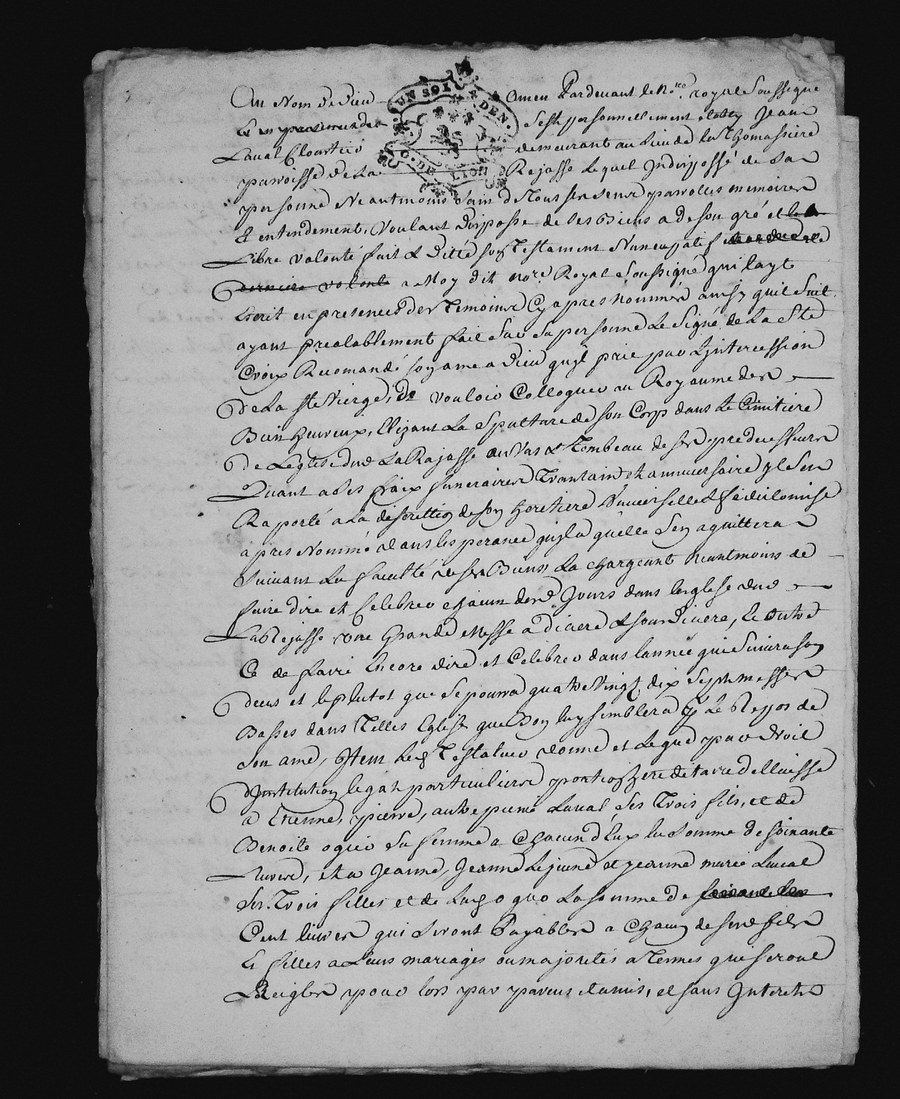 Au Nom de Dieu Amen Pardevant le No.re royal Soussigné
UN SOL DEN
G. DE LYON
Sest personnellement etably Jean
Laval demeurant au Lieu de la Thomassiere
parroisse de La Rejasse Lequel Indisposé de Sa
personne Neantmoins Sain de tous ses sens parrolles memoires
& entendement, Voulant disposse de ses Biens a de son gré et
Libre volonté fait & Dité son Testament Nuncupatif
derniere volonte a Moy dit no.re Royal Soussigné qui layt
Ecrit en presences des Temoins Cy apres Nommés ainsy quil Suit
ayant prealablement fait Sur Sa personne Le Signe de La Ste
Croix Recomandé son ame a Dieu quil prie par Lintercession
De La Ste Vierge, De vouloir Colloquer au Royaume des
Bien heureux, Elizant La Spulture de son Corp dans Le Cimitiere
De Leglise dud La Rajasse au Vas & Tombeau de ses predecesseurs
Quant a Ses fraix funeraires Trantain et anniversaire yl Sen
Raporté a La discrettion de Son heretiere Universelle & fideicomise
apres Nommé dans lesperance quela quelle Sen aquittera
Suivant La faculté de ses Biens La chargeant neantmoins de
faire dire et Celebrer Jours dans leglese dud
La Rejasse une Grande Messe a Diacre & sous Diacre, Et outre
Ce de faire Encore dire et Celebrer dans lannée qui suivra son
deces et le plutot que Se poura quatre vingt dix Sept messes
Basses dans Telles Eglise que Bon luy semblera p.r Le Repos de
Son ame, Item Led Testateur donne et Legue par droit
Dinstitution legat particuliers portion here de taire dellaisse
a Etienne, pierre, autre pierre Laval Ses Trois fils, et de
Benoite ogier Sa femme a Chacun d'Eux La Somme de soixante
Livres, Et a Jeanne, Jeanne Lejeune et jeanne marie Laval
Ses Trois filles et de Lad ogier La somme de
Cent livres qui Seront Payables a Chacun de sesd fils
Et filles a Leurs mariages ou majorités a Termes qui seront
Reiglés pour lors par parens et amis, et sans Interets